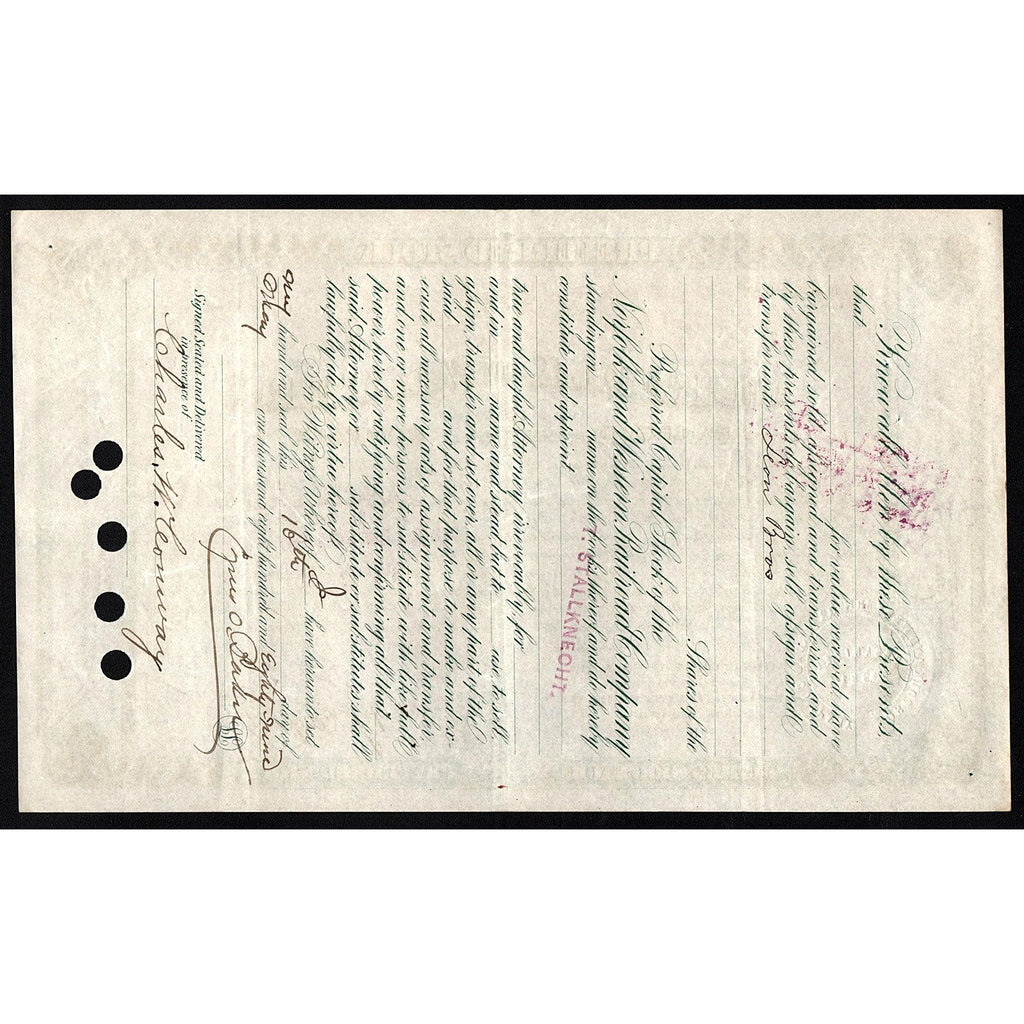 Know all Men by these Presents
that
for value received have
bargained, sold, assigned and transferred and
by these presents do bargain, sell, assign and
transfer unto Leon Bros
Shares of the
Preferred Capital Stock of the
Norfolk and Western Railroad Company
standing in name on the books thereof and do hereby
constitute and appoint T. STALLKNECHT.
true and lawful Attorney irrevocably for
and in name and stead but to use, to sell
assign, transfer and set over all or any part of the
said and for that purpose to make and ex-
ecute all necessary acts of assignment and transfer
and one or more persons to substitute with like full
power, hereby ratifying and confirming all that
said Attorney or substitute or substitutes shall
lawfully do by virtue hereof
In Witness Whereof I have hereunto set
my hand and seal this 16th day of
May one thousand eight hundred and Eighty-nine
Signed Sealed and Delivered
in presence of
Charles H. Conway